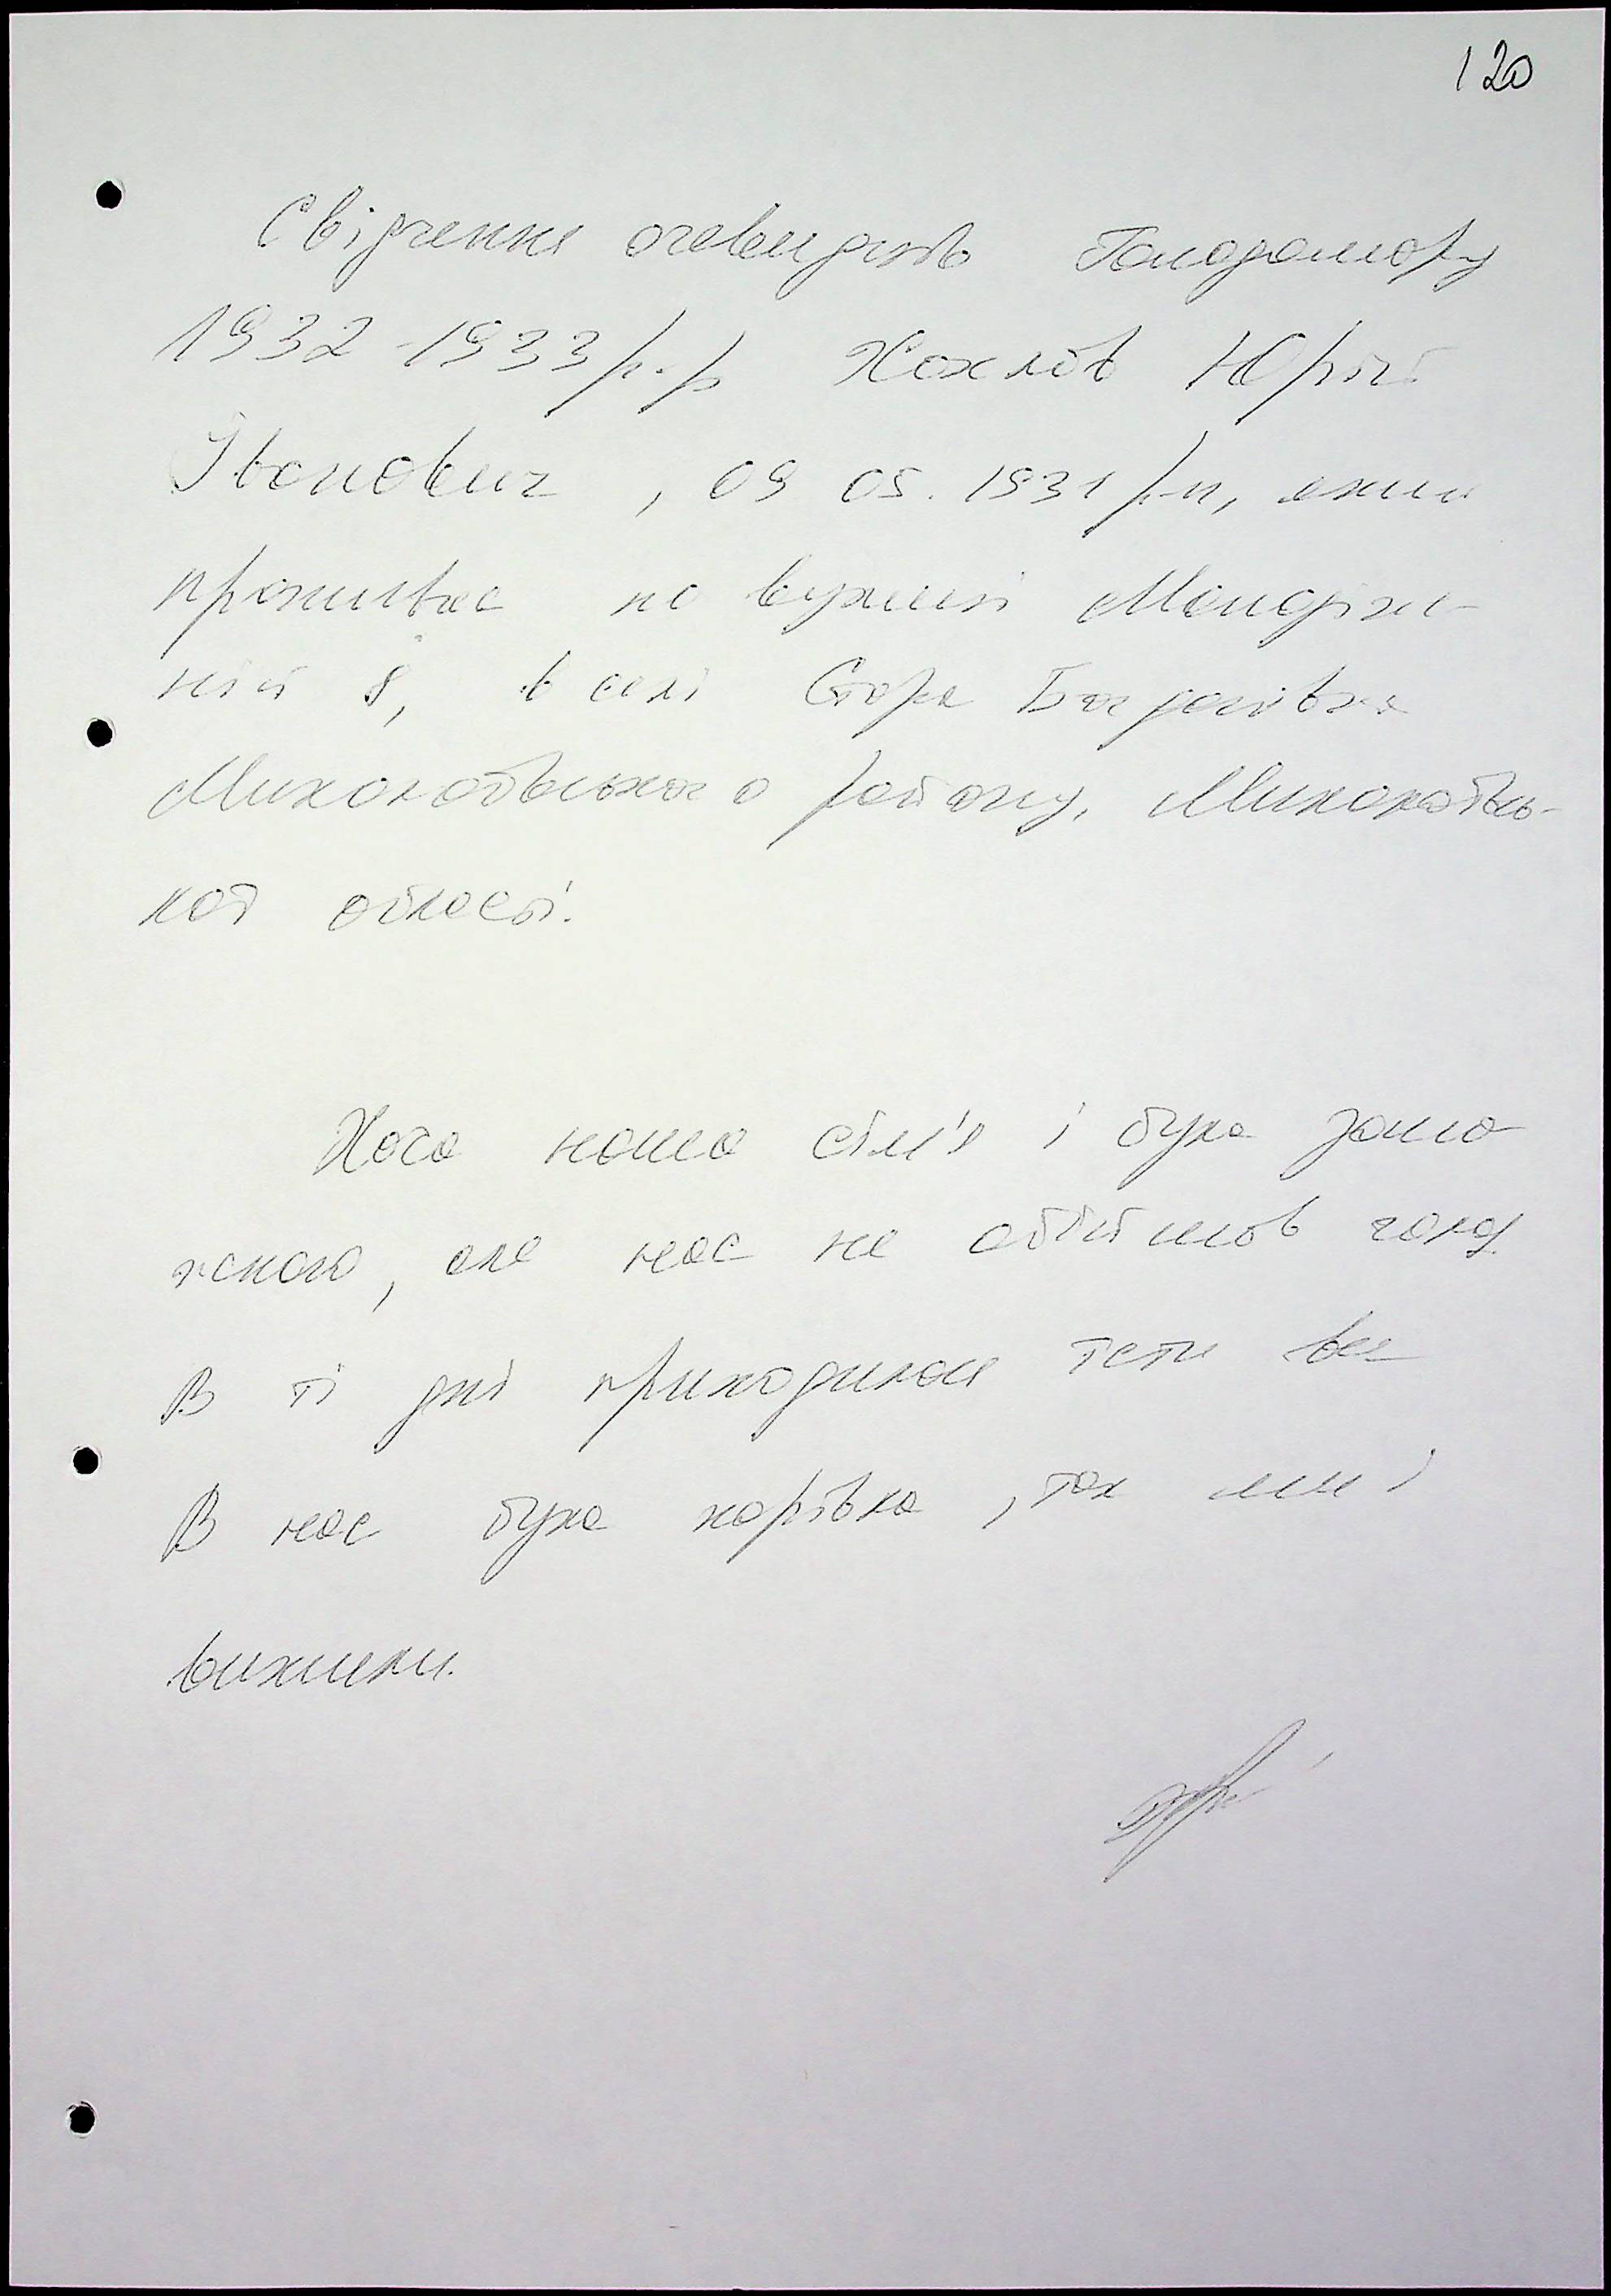 120
Свідчення очевидців Голодомору
1932-1933 р.р Хохлов Юрій
Іванович, 09 05. 1931 р.н, який
проживає по вулиці Молодіж-
ній 8, в селі Стара Богданівка
Миколаївського району, Миколаївсь-
кої області.
Хоча наша сім'я і була замо
жною, але нас не обійшов голод
В ті дні приходилося їсти все
В нас була корівка, так ми і
вижили.